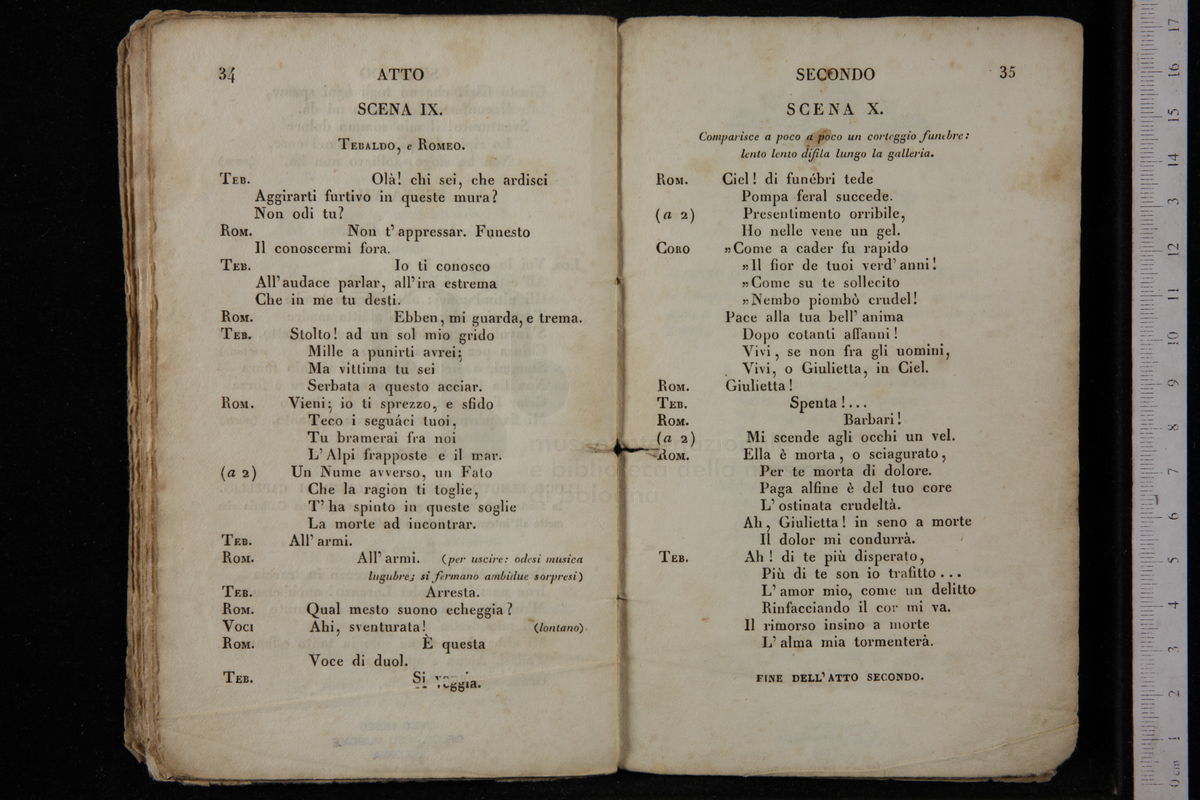 34 ATTO
SCENA IX.
TEBALDO, e ROMEO.
TEB. Olà! chi sei, che ardisci
Aggirarti furtivo in queste mura?
Non odi tu?
ROM. Non t' appressar. Funesto
Il conoscermi fora.
TEB. Io ti conosco
All' audace parlar, all' ira estrema
Che in me tu desti.
ROM. Ebben, mi guarda, e trema.
TEB. Stolto! ad un sol mio grido
Mille a punirti avrei;
Ma vittima tu sei
Serbata a questo acciar.
ROM. Vieni; io ti sprezzo, e sfido
Teco i seguáci tuoi,
Tu bramerai fra noi
L' Alpi frapposte e il mar.
(a 2) Un Nume avverso, un Fato
Che la ragion ti toglie,
T' ha spinto in queste soglie
La morte ad incontrar.
TEB. All' armi.
ROM. All' armi. (per uscire: odesi musica
lugubre; si fermano ambidue sorpresi)
TEB. Arresta.
ROM. Qual mesto suono echeggia?
VOCI Ahi, sventurata! (lontano)
ROM. È questa
Voce di duol.
TEB. Si veggia.
SECONDO 35
SCENA X.
Comparisce a poco a poco un corteggio funebre:
lento lento difila lungo la galleria.
ROM. Ciel! di funébri tede
Pompa feral succede.
(a 2) Presentimento orribile,
Ho nelle vene un gel.
CORO »Come a cader fu rapido
»Il fior de tuoi verd' anni!
»Come su te sollecito
»Nembo piombò crudel!
Pace alla tua bell' anima
Dopo cotanti affanni!
Vivi, se non fra gli uomini,
Vivi, o Giulietta, in Ciel.
ROM. Giulietta!
TEB. Spenta!...
ROM. Barbari!
(a 2) Mi scende agli occhi un vel.
ROM. Ella è morta, o sciagurato,
Per te morta di dolore.
Paga alfine è del tuo core
L' ostinata crudeltà.
Ah, Giulietta! in seno a morte
Il dolor mi condurrà.
TEB. Ah! di te più disperato,
Più di te son io trafitto...
L' amor mio, come un delitto
Rinfacciando il cor mi va.
Il rimorso insino a morte
L' alma mia tormenterà.
FINE DELL' ATTO SECONDO.